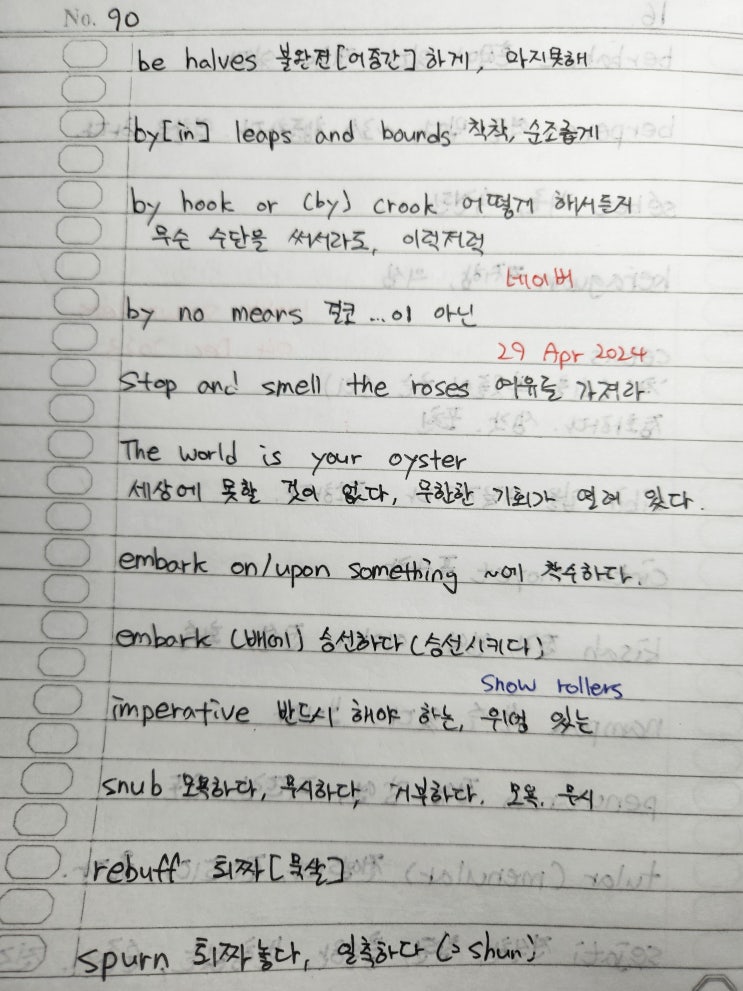 No. 90
be halves 불완전[어중간]하게, 마지못해
by[in] leaps and bounds 착착, 순조롭게
by hook or (by) crook 어떻게 해서든지
무슨 수단을 써서라도, 이럭저럭
네이버
by no means 결코 ...이 아닌
29 Apr 2024
Stop and smell the roses 여유를 가져라
The world is your oyster
세상에 못할 것이 없다, 무한한 기회가 열려 있다.
embark on/upon something ~에 착수하다.
embark (배에) 승선하다(승선시키다)
Show rollers
imperative 반드시 해야 하는, 위엄 있는
snub 모욕하다, 무시하다, 거부하다. 모욕. 무시
rebuff 퇴짜[묵살]
spurn 퇴짜놓다, 일축하다 (= shun)